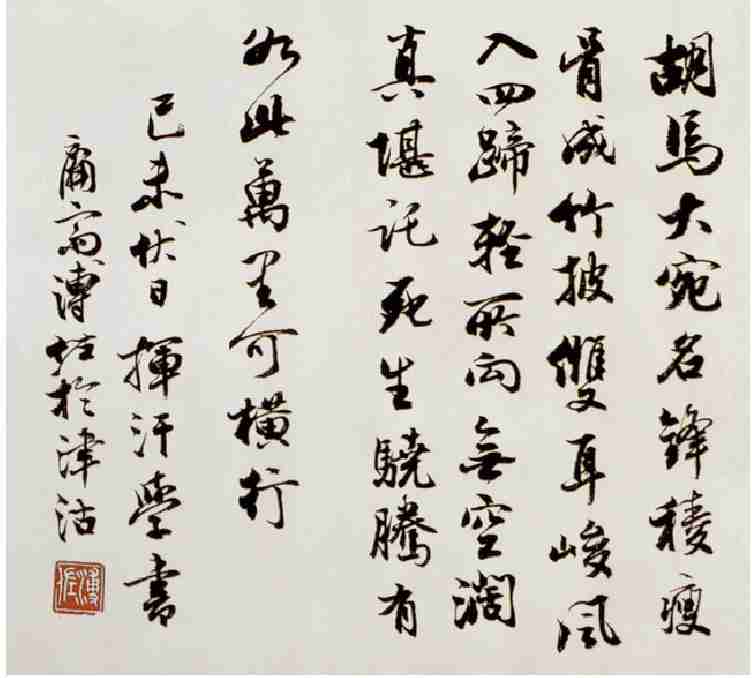 胡馬大宛名鋒稜瘦
骨成竹披雙耳峻風
入四蹄輕所向無空濶
真堪託死生驍騰有
如此萬里可橫行
己未伏日揮汗學書
於津沽